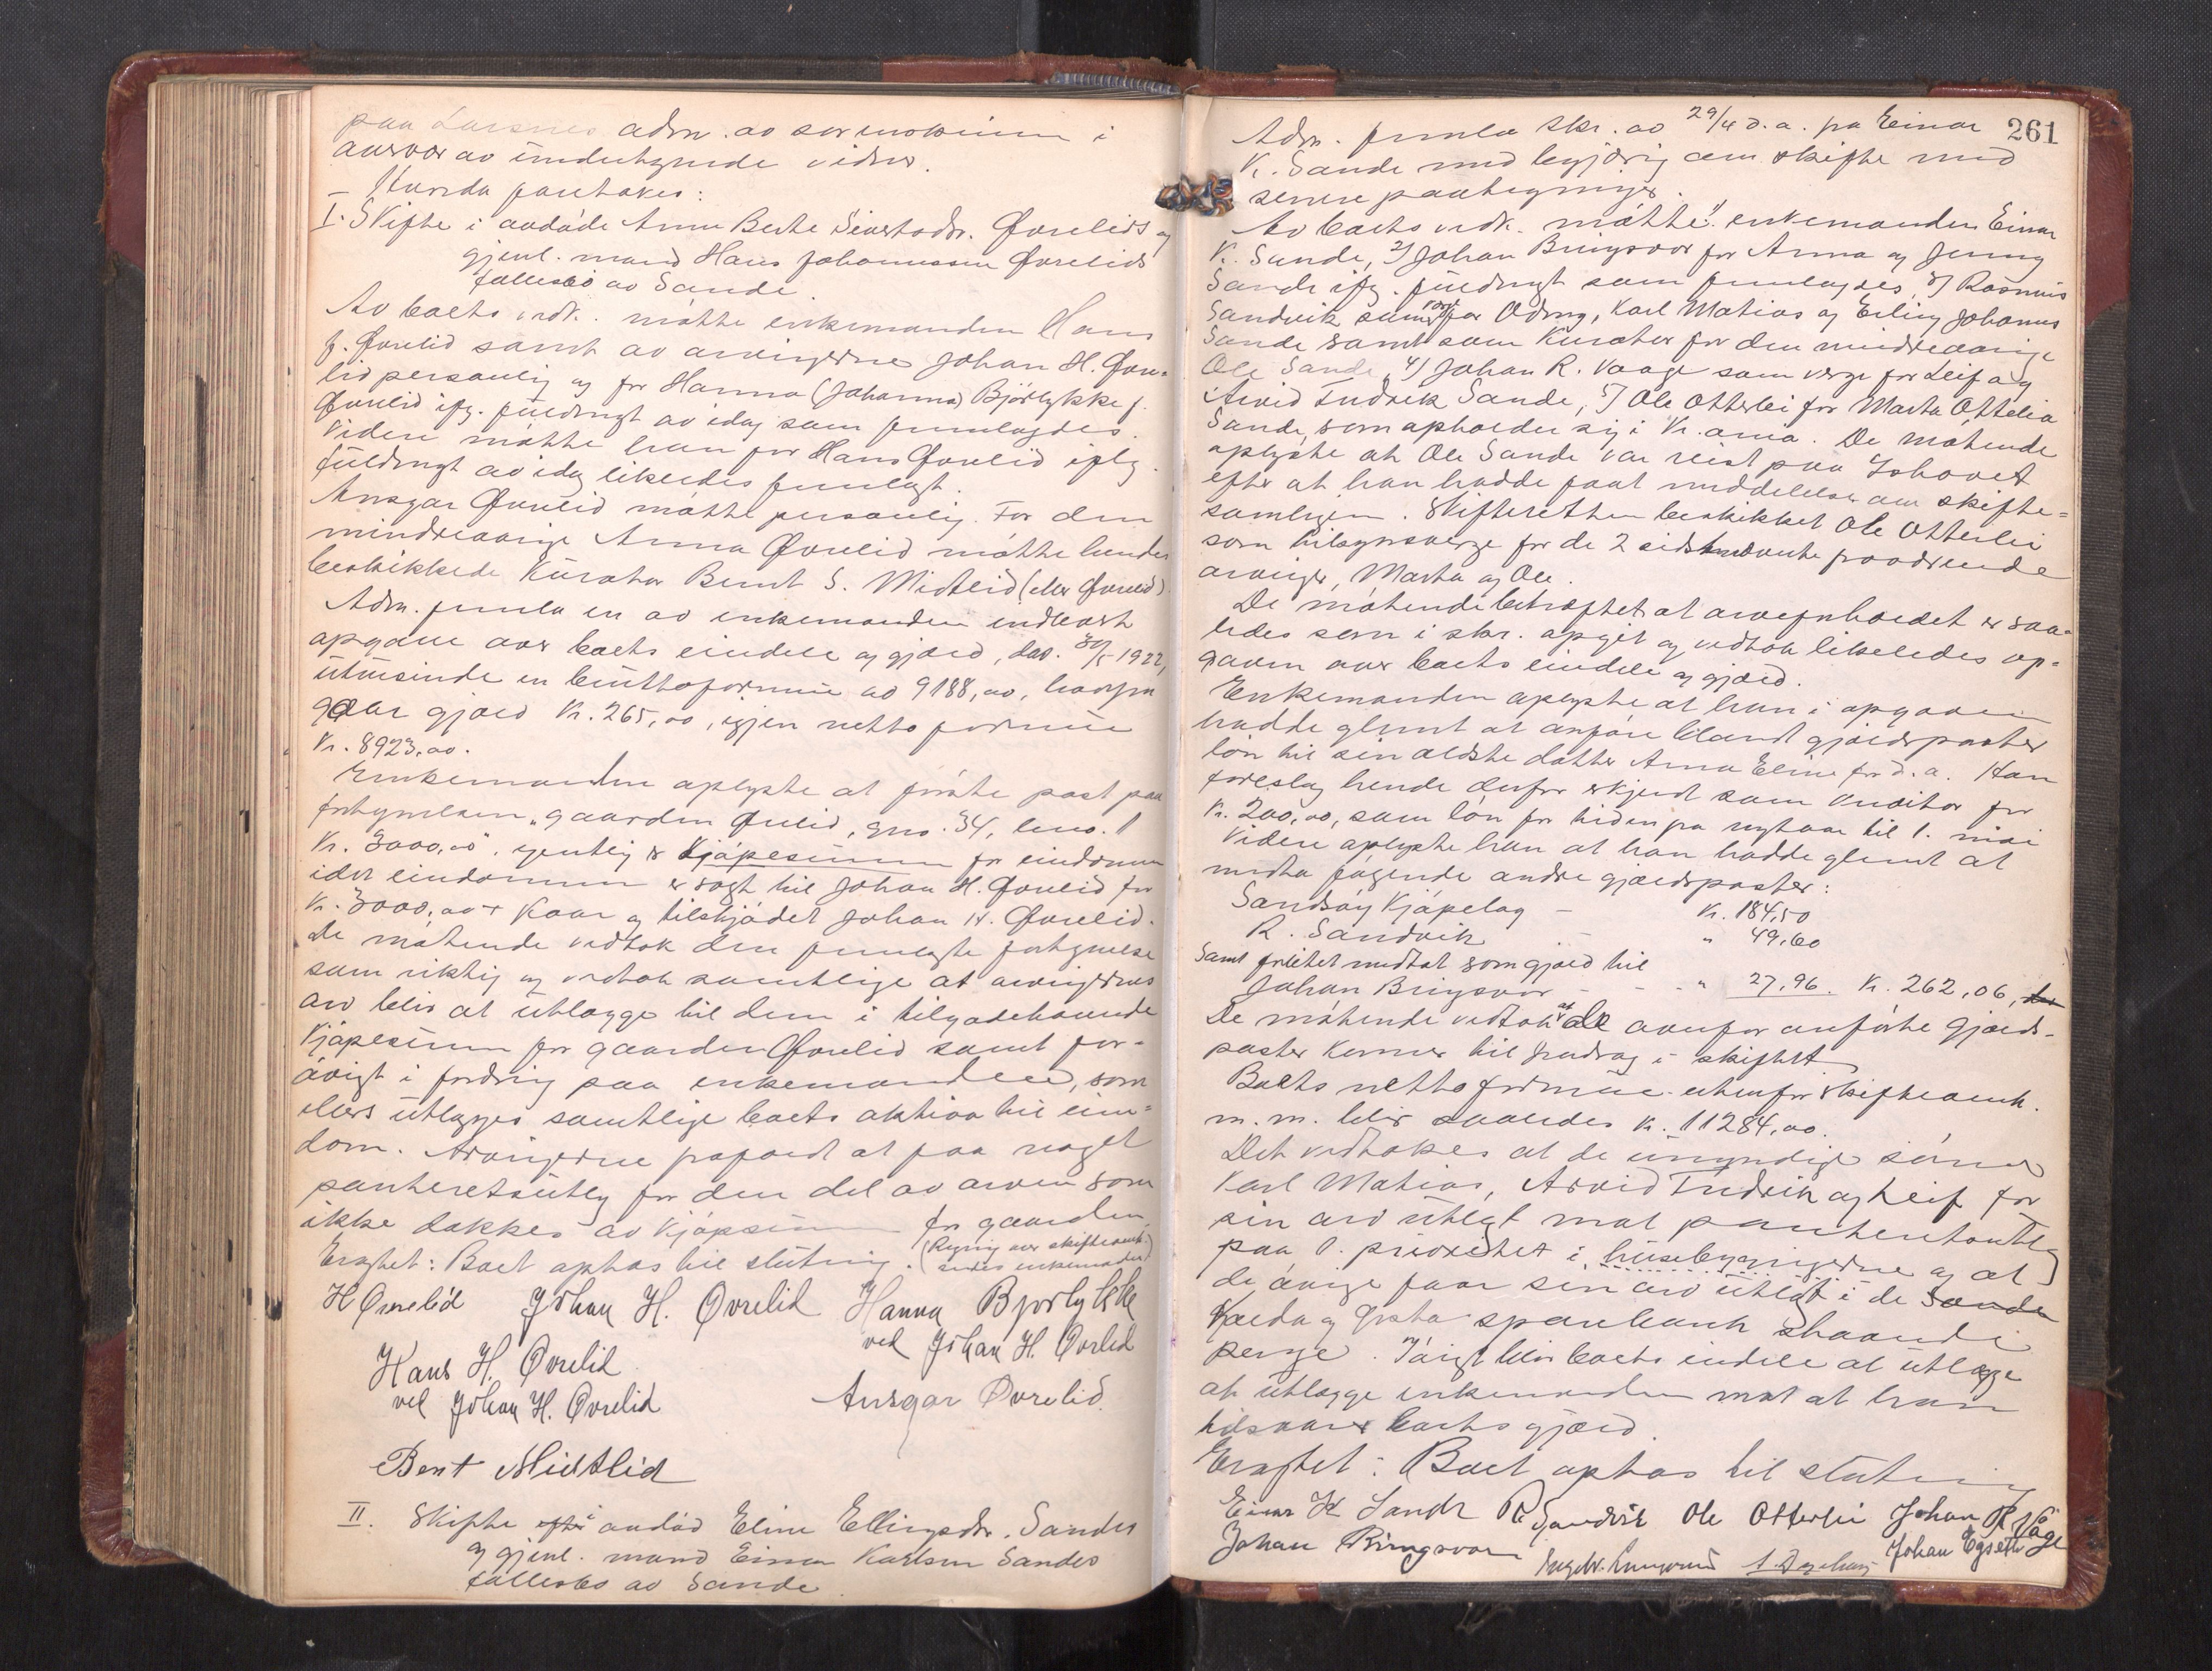 paa Larsnes adm. av sorenskriveren i
nærvær av undertegnede vidner.
— Hvorda foretokes:
I. Skifte i avdøde Anne Berte Sivertsdtr. Øvrelids og
gjenl. mand Hans Johannessen Øvrelids
fællesbo av Sande.
Av boets vedk. møtte enkemanden Hans
J. Øvrelid samt av arvingerne Johan H. Øvre-
lid personlig og for Hanna (Johanna) Bjørlykke f.
Øvrelid ifg. fuldmagt av idag som fremlagdes.
Videre møtte han for Hans Øvrelid ifølg.
fuldmagt av idag likeledes fremlagt.
Ansgar Øvrelid møtte personlig. For den
mindreaarige Anna Øvrelid møtte hendes
beskikkede kurator Bernt S. Midtlid (eller Øvrelid)
Adm. fremla en av enkemanden indlevert
opgave over boets eiendele og gjæld, dat. 30/5 1922,
utvisende en bruttoformue av 9188,00, hvorfra
gaar gjæld kr. 265,00, igjen netto formue
kr. 8923,00.
Enkemanden oplyste at første post paa
fortegnelsen "gaarden Øvrelid, gno. 34, bno. 1
Kr. 3000,00". egentlig er kjøpesummen for eiendommen
idet eiendommen er solgt til Johan H. Øvrelid for
kr. 3000,00 + kaar og tilskjødet Johan H. Øvrelid.
De møtende vedtok den fremlagte fortegnelse
som riktig og vedtok samtlige at arvingernes
arv blir at utlægge til dem i tilgodehavende
kjøpesum for gaarden Øvrelid samt for-
øvrigt i fordring paa enkemanden, som
ellers utlægges samtlige boets aktiva til eien-
dom. Arvingerne frafaldt at faa noget
panteretsutlæg for den del av arven som
ikke dækkes av kjøpesummen for gaarden.
Eragtet: Boet optas til slutning. (Regning over skifteomk.
sendes enkemanden)
H Øvrelid Johan H. Øvrelid Hanna Bjørlykke
ved Johan H. Øvrelid
Hans H. Øvrelid
ved Johan H. Øvrelid
Ansgar Øvrelid.
Bent Midtlid
II. Skifte efter i avdød Eline Ellingsdtr. Sandes
og gjenl. mand Einar Karlsen Sandes
fællesbo av Sande.
261
Adm. fremla skr. av 29/4 d.a. fra Einar
K. Sande med begjæring om skifte med
senere paategninger.
Av boets vedk. møtte: enkemanden Einar
K. Sande, 2) Johan Bringsvor for Anna og Jenny
Sande ifg. fuldmagt som fremlagdes, 3) Rasmus
Sandvik som verge for Odny, Karl Matias og Erling Johannes
Sande samt som kurator for den mindreaarige
Ole Sande, 4) Johan R. Vaage som verge for Leif og
Arvid Fredrik Sande, 5) Ole Otterlei for Marta Ottelia
Sande, som opholder sig i Kr.ania. De møtende
oplyste at Ole Sande var reist paa Ishavet
efter at han hadde faat meddelelse om skifte-
samlingen. Skifteretten beskikket Ole Otterlei
som tilsynsverge for de 2 sidstnævnte fraværende
arvinger, Marta og Ole.
De møtende bekræftet at arveforholdet er saa-
ledes som i skr. opgit og vedtok likeledes op-
gaven over boets eiendele og gjæld.
Enkemanden oplyste at han i opgaven
hadde glemt at anføre blandt gjældsposter
løn til sin ældste datter Anna Eline for d.a. Han
foreslog hende derfor erkjendt som kreditor for
kr. 200,00, som løn for tiden fra nytaar til 1. mai
Videre oplyste han at han hadde glemt at
medta følgende andre gjældsposter:
Sandsøy Kjøpelag — Kr. 184,50
R. Sandvik — " 49,60
Samt forlitet medtat som gjæld til
Johan Bringsvor - - - " 27,96. Kr. 262,06,
De møtende vedtok at de ovenfor anførte gjælds-
poster kommer til fradrag i skiftet
Boets netto formue utenfor skifteomk.
m.m. blir saaledes kr. 11284,00.
Det vedtokes at de umyndige sønner
Karl Matias, Arvid Fredrik og Leif for
sin arv utlegt mot panteretsutlæg
paa 1. prioritet i husebygningerne og at
de øvrige faar sin arv utlagt i de Sande
Kjælda og Gresta sparebank staaende
penge. Iøvrigt blir boets eiendele at utlægge
at utlægge enkemanden mot at han
tilsvarer boets gjæld.
Eragtet: Boet optas til slutning
Einar K Sande R Sandvik Ole Otterlei Johan R Våge
Johan Bringsvor Johan Egseth